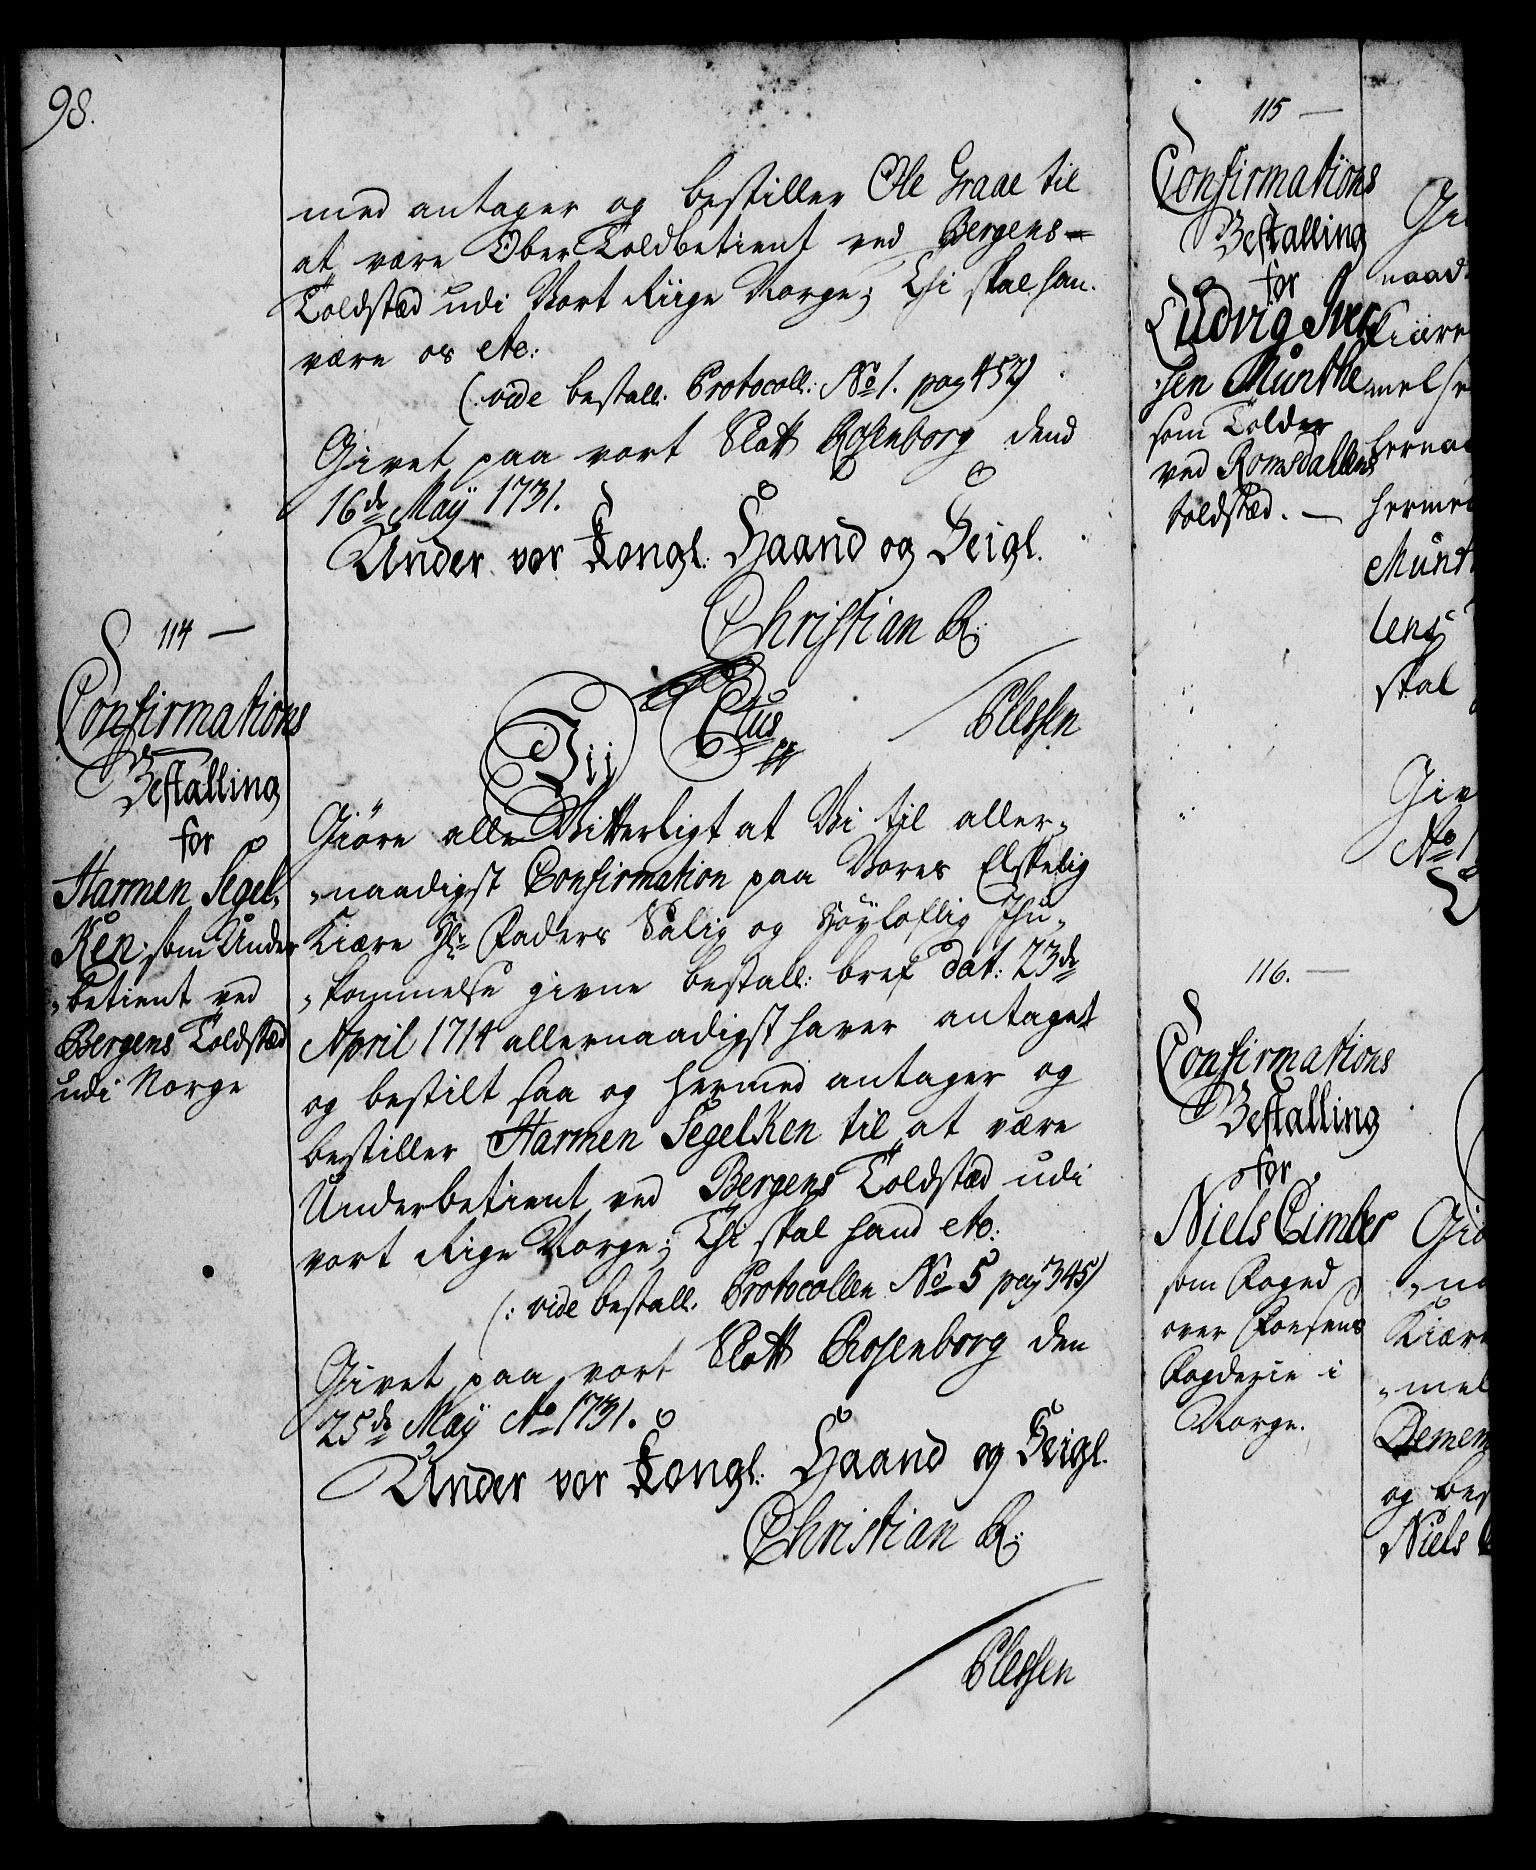 98.
med antager og bestiller Ole Graae til
at være Ober Toldbetient ved Bergens
Toldstæd udi Vort Riige Norge; Thi skal han
være os etc:
(: vide bestall: Protocoll: No 1. pag 457)
Givet paa vort Slott Rosenborg dend
16de Maÿ 1731.
Under vor Kongl: Haand og Seigl.
Christian R:
Plessen
114
Confirmations
Bestalling
for
Harmen Segel-
Ken som Under
betient ved
Bergens Toldstæd
udi Norge
Vii Ctus
Giöre alle Vitterligt at Vi til aller-
naadigst Confirmation paa Vores Elskelig
Kiære Hr Faders Salig og Höyloflig Ihu-
kommelse givne bestall: bref dat: 23de
April 1714 allernaadigst haver antaget
og bestilt saa og hermed antager og
bestiller Harmen SegelKen til at være
Underbetient ved Bergens Toldstæd udi
vort Rige Norge; Thi skal hand etc:
(: vide bestall: Protocollen No 5 pag 345)
Givet paa vort Slott Rosenborg den
25de Maÿ Ao 1731.
Under vor Kongl: Haand og Seigl.
Christian R:
Plessen
115
Confirmations
Bestalling
for
Ludvig Iver
sen Munthe
som Tolder
ved Romsdallens
toldstæd.
116.
Confirmations
Bestalling
for
Niels Cimber
som Foged
over Fosens
Fogderie i
Norge.
naad
Kiære
melse
hernaa
herme
Munt
lens
skal
Giv
No 1
Giö
Kiære
mel
og bes
Niels